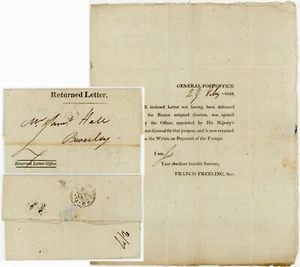 Returned Letter,
Mr. Saml. Hall
Beverley
Returned Letter Office.
GENERAL POST OFFICE
enclosed Letter not having been delivered
the Reason assigned thereon, was opened
by the Officer, appointed by His Majesty's
Post-master-General for that purpose, and is now returned
to the Writer, on Payment of the Postage.
I am,
Your obedient humble Servant,
FRANCIS FREELING, Sec.